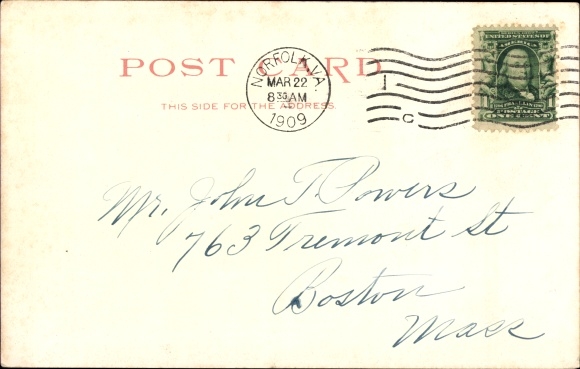 POST CARD
THIS SIDE FOR THE ADDRESS.
NORFOLK, VA.
MAR 22
8 30 AM
1909
1
C
UNITED STATES OF
AMERICA
POSTAGE
ONE CENT
Mr. John T. Powers
763 Tremont St
Boston
Mass